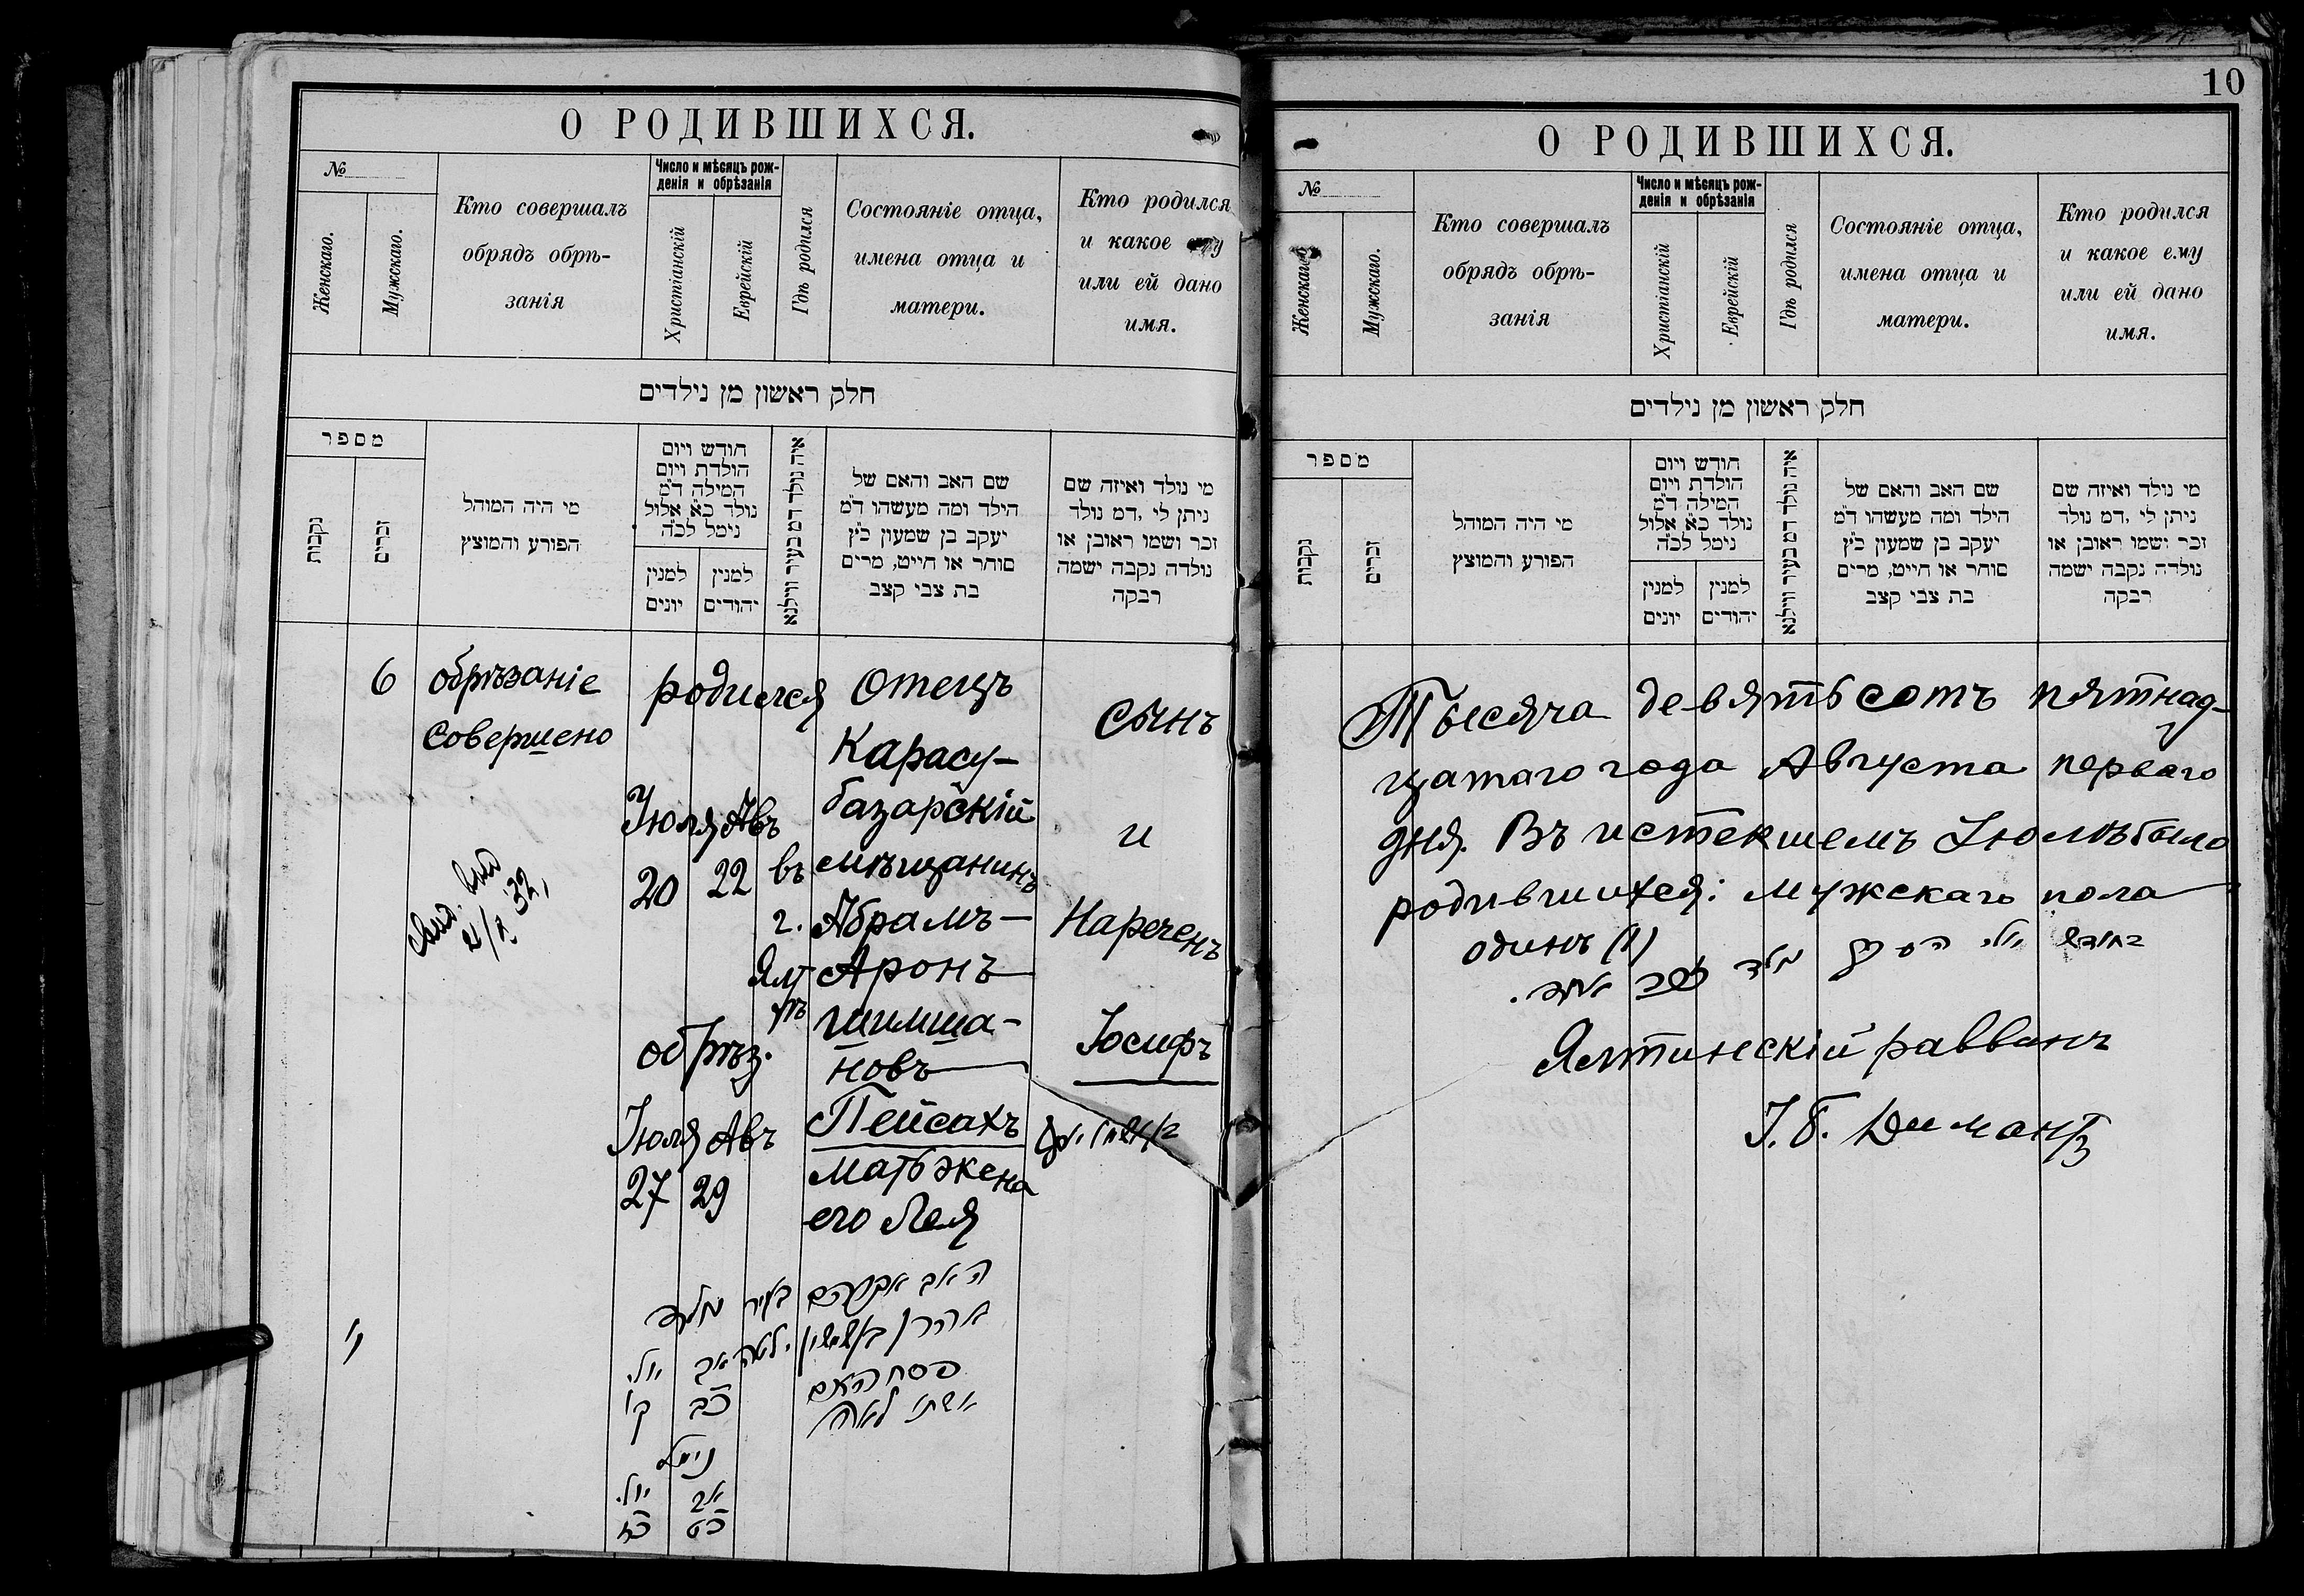 О РОДИВШИХСЯ.
№
Женскаго.
Мужскаго.
Кто совершалъ
обрядъ обрѣ-
занія
Число и мѣсяцъ рож-
денія и обрѣзанія
Христіанскій
Еврейскій
Гдѣ родился
Состояніе отца,
имена отца и
матери.
Кто родился
и какое ему
или ей дано
имя.
חלק ראשון מן נילדים
מספר
נקבות
זכרים
מי היה המוהל
הפורע והמוצץ
חודש ויום
הולדת ויום
המילה ד"מ
נולד כ"א אלול
נימל לכ"ה
למנין
יונים
למנין
יהודים
איה נולד דמ בעיר ווילנא
שם האב והאם של
הילד ומה מעשהו ד"מ
יעקב בן שמעון כ"ץ
סוחר או חייט, מרים
בת צבי קצב
מי נולד ואיזה שם
ניתן לי ,דמ נולד
זכר ושמו ראובן או
נולדה נקבה ישמה
רבקה
6
обрѣзаніе
совершено
родился
Іюля Авъ
20 22
въ
г.
Ял
тѣ
обрѣз.
Іюля Авъ
27 29
Отецъ
Карасу-
базарскій
мѣщанинъ
Абрамъ-
Аронъ
Шимша-
новъ
Пейсахъ
мать жена
его Лея
Сынъ
и
Нареченъ
Іосифъ
2/I 32,
האב אברהם
אהרן בן שמשון
פסח האם
אשתו לאה
בעיר
ילטה
נולד
יולי אב
כ' כב
נימול
יולי אב
כז כט
10
О РОДИВШИХСЯ.
№
Женскаго
Мужскаго.
Кто совершалъ
обрядъ обрѣ-
занія
Число и мѣсяцъ рож-
денія и обрѣзанія
Христіанскій
Еврейскій
Гдѣ родился
Состояніе отца,
имена отца и
матери.
Кто родился
и какое ему
или ей дано
имя.
חלק ראשון מן נילדים
מספר
נקבות
זכרים
מי היה המוהל
הפורע והמוצץ
חודש ויום
הולדת ויום
המילה ד"מ
נולד כ"א אלול
נימל לכ"ה
למנין
יונים
למנין
יהודים
איה נולד דמ בעיר ווילנא
שם האב והאם של
הילד ומה מעשהו ד"מ
יעקב בן שמעון כ"ץ
סוחר או חייט, מרים
בת צבי קצב
מי נולד ואיזה שם
ניתן לי ,דמ נולד
זכר ושמו ראובן או
נולדה נקבה ישמה
רבקה
Тысяча девятьсотъ пятнад-
цатаго года Августа перваго
дня. Въ истекшемъ Іюлѣ было
родившихся: мужскаго пола
одинъ (1)
בחודש יולי נולד
זכר אחד.
Ялтинскій раввинъ
І. Б. Димантъ